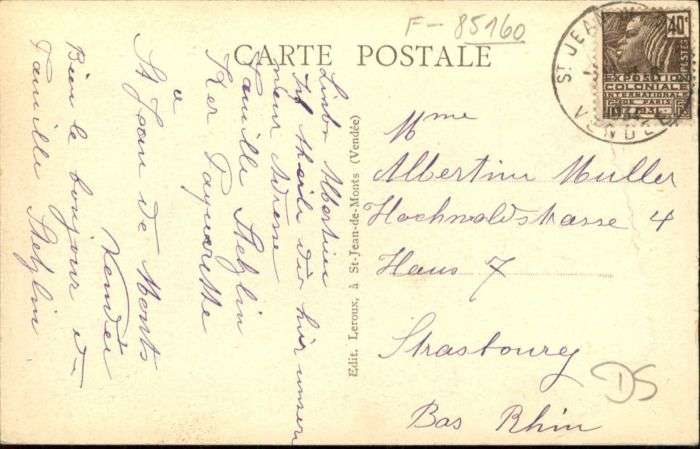 F-85160
CARTE POSTALE
40c
POSTES
EXPOSITION
COLONIALE
INTERNATIONALE
DE PARIS
1931
ST JEAN
VENDÉE
Mme
Albertine Muller
Hochwaldstrasse 4
Haus 7
Strasbourg
Bas Rhin
DS
Edit. Leroux, à St-Jean-de-Monts (Vendée)
Liebe Albertine
Ich theile dir hier unsere
neue Adresse
Famille Stehlin
Ker Paquerette
a
St Jean de Monts
Vendée
Bien le bonjour de
Famille Stehlin